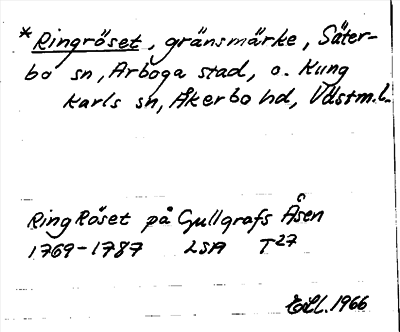 *Ringröset, gränsmärke, Säter-
bo sn, Arboga stad, o. Kung
Karls sn, Åkerbo hd, Västm.l.
RingRöset på Gullgrafs Åsen
1769-1787 LSA T27
1966